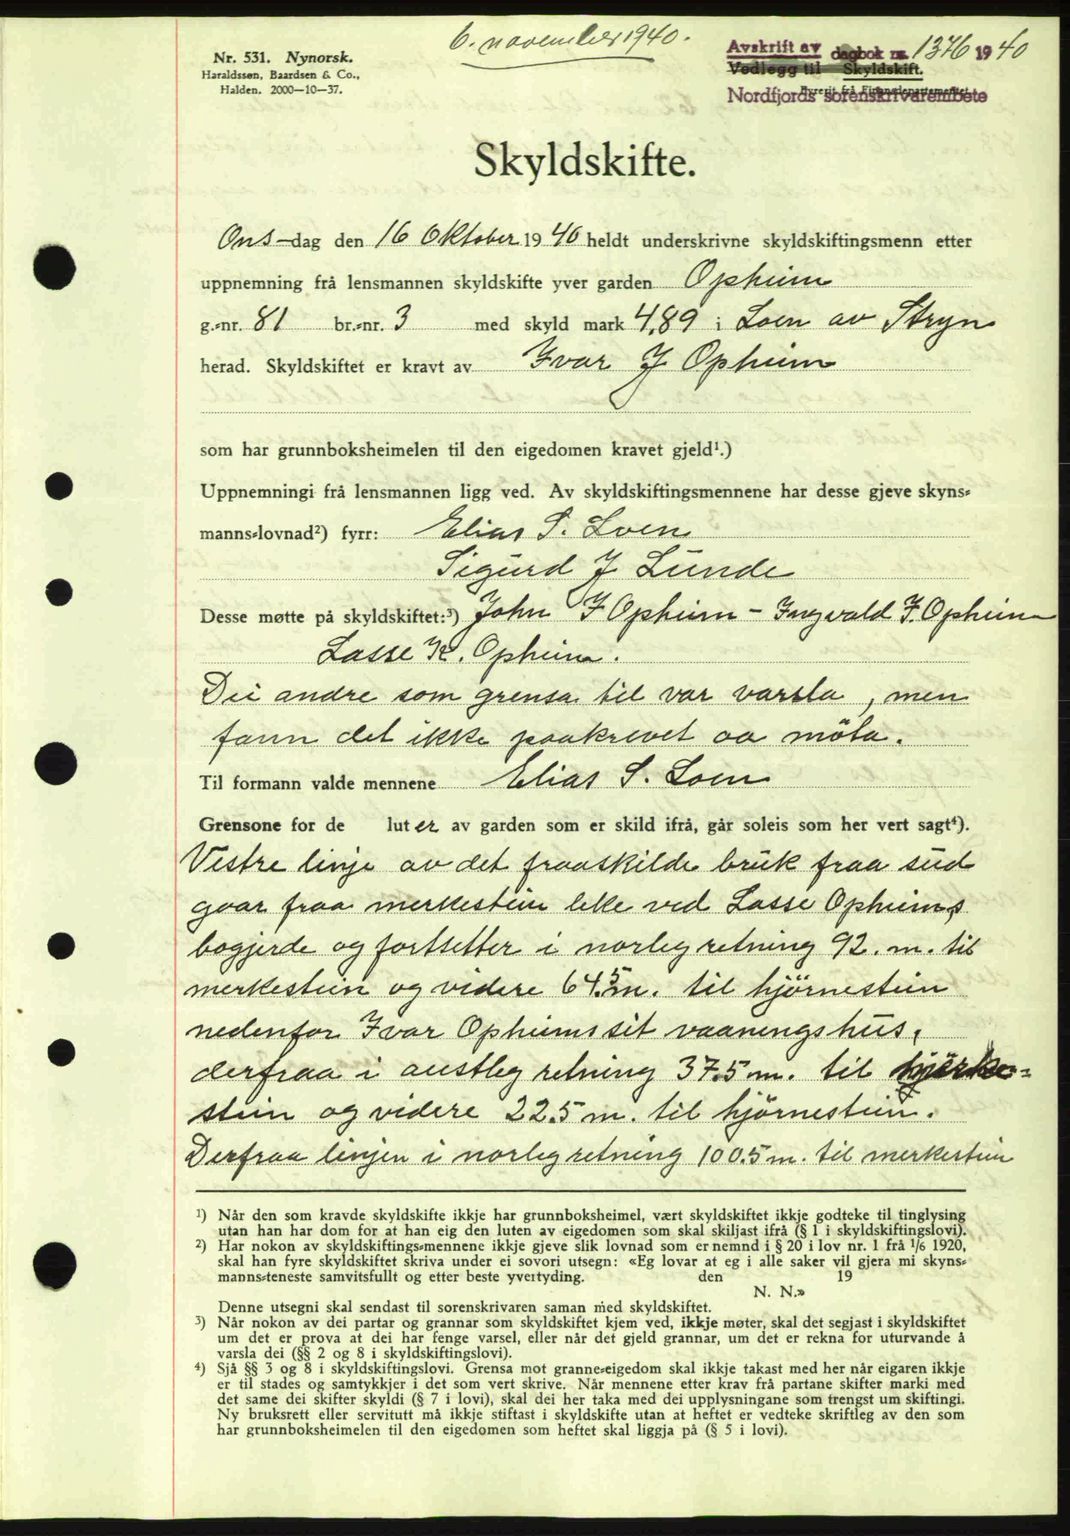 6. november 1940.
Nr. 531. Nynorsk.
Haraldssen, Baardsen & Co.,
Halden. 2000—10—37.
Avskrift av dagbok nr. 1376 1940
Vedlegg til Skyldskift.
Nordfjords sorenskrivarembete
Skyldskifte.
Ons-dag den 16 Oktober 1940 heldt underskrivne skyldskiftingsmenn etter
uppnemning frå lensmannen skyldskifte yver garden Opheim
g.=nr. 81 br.=nr. 3 med skyld mark 4,89 i Loen av Stryn
herad. Skyldskiftet er kravt av Ivar J Opheim
som har grunnboksheimelen til den eigedomen kravet gjeld¹.)
Uppnemningi frå lensmannen ligg ved. Av skyldskiftingsmennene har desse gjeve skyns=
manns=lovnad²) fyrr: Elias S. Loen
Sigurd J Lunde
Desse møtte på skyldskiftet:³) John J Opheim - Ingvald J. Opheim
Lasse K. Opheim.
Dei andre som grensa til var varsla, men
fann det ikke paakrevet aa möta.
Til formann valde mennene Elias S. Loen
Grensone for de luter av garden som er skild ifrå, går soleis som her vert sagt⁴).
Vestre linje av det fraaskilde bruk fraa sud
gaar fraa merkestein like ved Lasse Opheims
bogjerde og fortsetter i norleg retning 92. m. til
merkestein og videre 64.5 m. til hjörnestein
nedenfor Ivar Opheims sit vaaningshus,
derfraa i austleg retning 37.5 m. til
stein og videre 22.5 m. til hjörnestein.
Derfraa linjen i norleg retning 100.5 m. til merkestein
¹) Når den som kravde skyldskifte ikkje har grunnboksheimel, vært skyldskiftet ikkje godteke til tinglysing
utan han har dom for at han eig den luten av eigedomen som skal skiljast ifrå (§ 1 i skyldskiftingslovi).
²) Har nokon av skyldskiftings=mennene ikkje gjeve slik lovnad som er nemnd i § 20 i lov nr. 1 frå 1/6 1920,
skal han fyre skyldskiftet skriva under ei sovori utsegn: «Eg lovar at eg i alle saker vil gjera mi skyns=
manns=teneste samvitsfullt og etter beste yvertyding. den 19
N. N.»
Denne utsegni skal sendast til sorenskrivaren saman med skyldskiftet.
³) Når nokon av dei partar og grannar som skyldskiftet kjem ved, ikkje møter, skal det segjast i skyldskiftet
um det er prova at dei har fenge varsel, eller når det gjeld grannar, um det er rekna for uturvande å
varsla dei (§§ 2 og 8 i skyldskiftingslovi).
⁴) Sjå §§ 3 og 8 i skyldskiftingslovi. Grensa mot granne=eigedom skal ikkje takast med her når eigaren ikkje
er til stades og samtykkjer i det som vert skrive. Når mennene etter krav frå partane skifter marki med
det same dei skifter skyldi (§ 7 i lovi), skal dei her taka med dei upplysningane som trengst um skiftingi.
Ny bruksrett eller servitutt må ikkje stiftast i skyldskifte utan at heftet er vedteke skriftleg av den som
har grunnboksheimelen til den eigedomen som heftet skal liggja på (§ 5 i lovi).